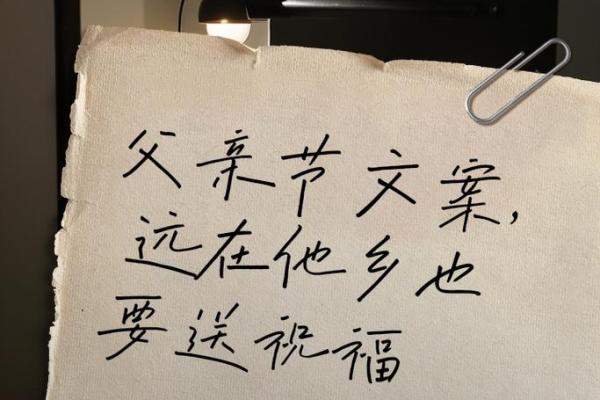 父亲节文案，
远在他乡也
要送祝福